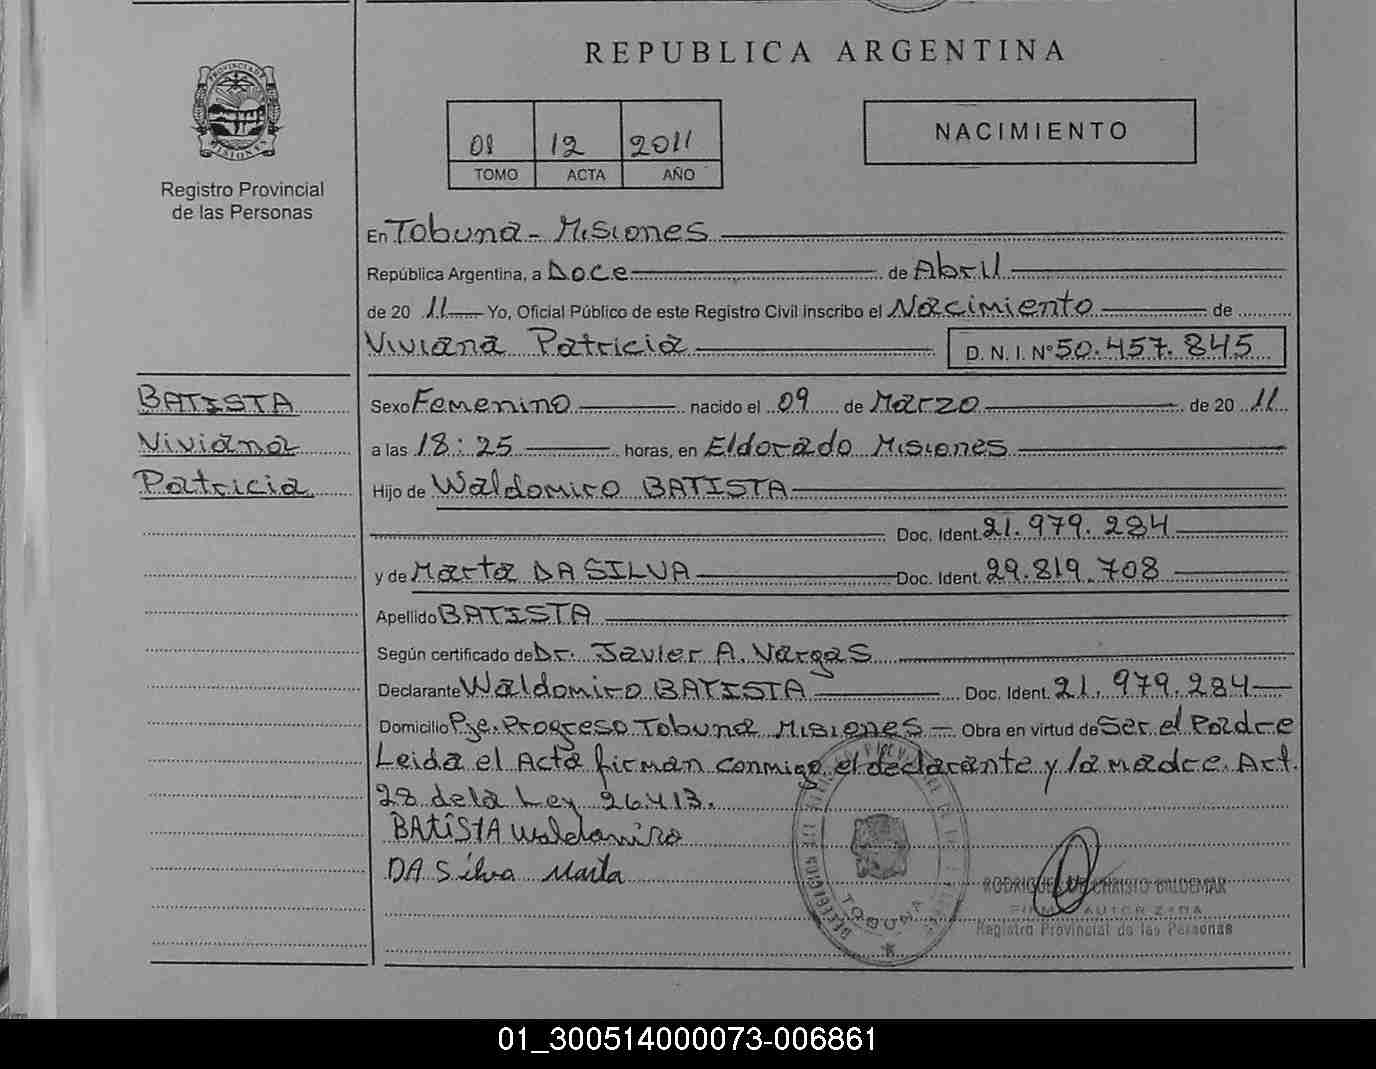 REPUBLICA ARGENTINA
PROVINCIA DE
MISIONES
Registro Provincial
de las Personas
01 12 2011
TOMO ACTA AÑO
NACIMIENTO
En Tobuna - Misiones
República Argentina, a Doce de Abril
de 20 11 Yo, Oficial Público de este Registro Civil inscribo el Nacimiento de
Viviana Patricia D. N. I. Nº 50.457.845
BATISTA
Viviana
Patricia
Sexo Femenino nacido el 09 de Marzo de 20 11
a las 18:25 horas, en Eldorado Misiones
Hijo de Waldomiro BATISTA
Doc. Ident. 21.979.284
y de Marta DA SILVA Doc. Ident. 29.819.708
Apellido BATISTA
Según certificado de Dr. Javier A. Vargas
Declarante Waldomiro BATISTA Doc. Ident. 21.979.284
Domicilio Pje. Progreso Tobuna Misiones - Obra en virtud de Ser el Padre
Leida el Acta firman conmigo el declarante y la madre. Art.
28 de la Ley 26.413.
BATISTA Waldomiro
DA Silva Marta
TOBUNA
FIRMA AUTORIZADA
Registro Provincial de las Personas
01_300514000073-006861